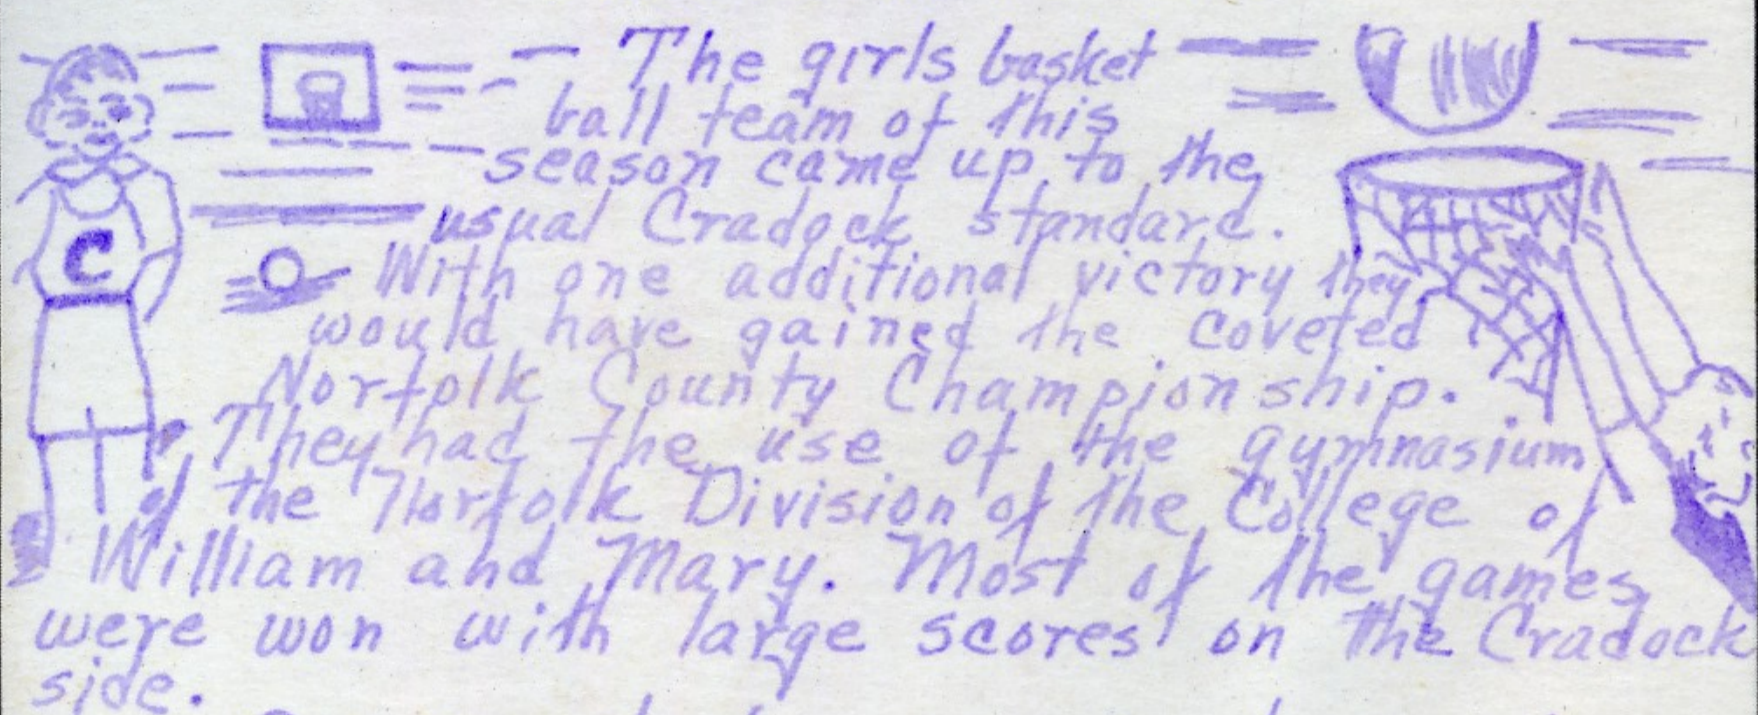 The girls basket
ball team of this
season came up to the
usual Cradock standard.
C
With one additional victory they
would have gained the coveted
Norfolk County Championship.
They had the use of the gymnasium
of the Norfolk Division of the College of
William and Mary. Most of the games
were won with large scores on the Cradock
side.